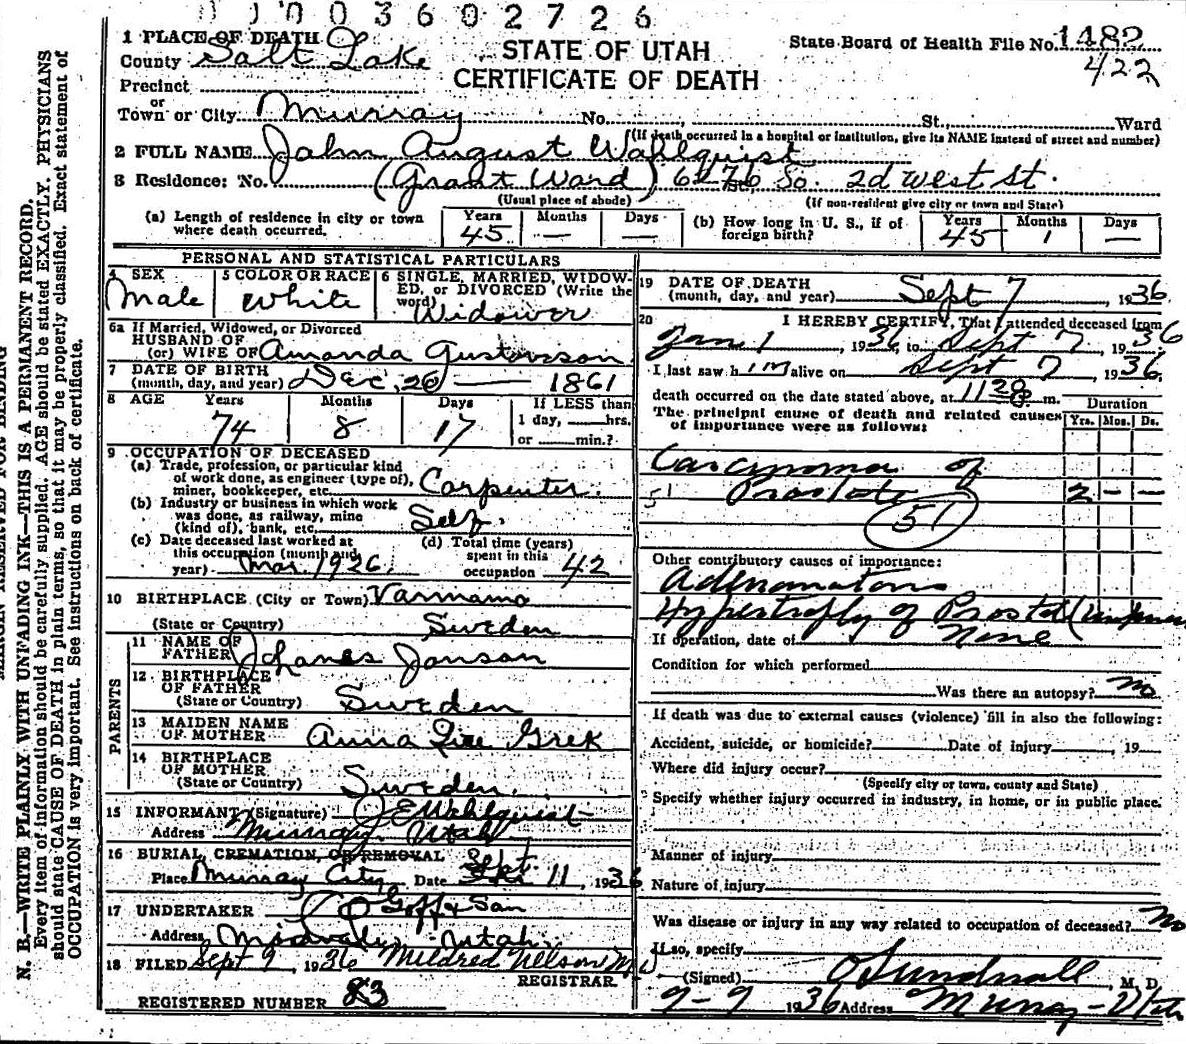 0 1 0 0 3 6 0 2 7 2 6
STATE OF UTAH
CERTIFICATE OF DEATH
State Board of Health File No. 1482
422
1 PLACE OF DEATH
County Salt Lake
Precinct
or
Town or City Murray No. St., Ward
(If death occurred in a hospital or institution, give its NAME instead of street and number)
2 FULL NAME John August Wahlquist
3 Residence: No. (Grant Ward) 6276 So. 2d West St.
(Usual place of abode) (If non-resident give city or town and State)
(a) Length of residence in city or town where death occurred. Years 45 Months — Days —
(b) How long in U. S., if of foreign birth? Years 45 Months 1 Days —
PERSONAL AND STATISTICAL PARTICULARS
4 SEX Male
5 COLOR OR RACE White
6 SINGLE, MARRIED, WIDOWED, or DIVORCED (Write the word) Widower
6a If Married, Widowed, or Divorced
HUSBAND OF
(or) WIFE OF Amanda Gustavsson
7 DATE OF BIRTH
(month, day, and year) Dec. 20 — 1861
8 AGE Years 74 Months 8 Days 17 If LESS than 1 day, hrs. or min.?
9 OCCUPATION OF DECEASED
(a) Trade, profession, or particular kind of work done, as engineer (type of), miner, bookkeeper, etc. Carpenter.
(b) Industry or business in which work was done, as railway, mine (kind of), bank, etc. Self.
(c) Date deceased last worked at this occupation (month and year) Mar. 1926
(d) Total time (years) spent in this occupation 42
10 BIRTHPLACE (City or Town) Varnamo
(State or Country) Sweden
PARENTS
11 NAME OF FATHER Johanes Janson
12 BIRTHPLACE OF FATHER
(State or Country) Sweden
13 MAIDEN NAME OF MOTHER Anna Grek
14 BIRTHPLACE OF MOTHER
(State or Country) Sweden.
15 INFORMANT (Signature) J E Wahlquist
Address Murray Utah
16 BURIAL, CREMATION, OR REMOVAL
Place Murray City Date Sept. 11, 1936
17 UNDERTAKER Goff & Son
Address Midvale, Utah.
18 FILED Sept 9, 1936 Mildred Nelson
REGISTRAR
REGISTERED NUMBER 83
19 DATE OF DEATH
(month, day, and year) Sept 7, 1936
20 I HEREBY CERTIFY, That I attended deceased from
Jan 1, 1936, to Sept 7, 1936
I last saw him alive on Sept 7, 1936
death occurred on the date stated above, at m.
The principal cause of death and related causes of importance were as follows:
Duration
Yrs. Mos. Ds.
Carcinoma of
51 Prostate 2 — —
51
Other contributory causes of importance:
Adenomatous
Hypertrofly of Prostat
If operation, date of None
Condition for which performed
Was there an autopsy? no
If death was due to external causes (violence) fill in also the following:
Accident, suicide, or homicide? Date of injury, 19
Where did injury occur?
(Specify city or town, county and State)
Specify whether injury occurred in industry, in home, or in public place.
Manner of injury
Nature of injury
Was disease or injury in any way related to occupation of deceased? no
If so, specify
(Signed) O Sundwall, M. D.
9-9 1936 Address Murray - Utah
N. B.—WRITE PLAINLY WITH UNFADING INK—THIS IS A PERMANENT RECORD.
Every item of information should be carefully supplied. AGE should be stated EXACTLY. PHYSICIANS
should state CAUSE OF DEATH in plain terms, so that it may be properly classified. Exact statement of
OCCUPATION is very important. See instructions on back of certificate.